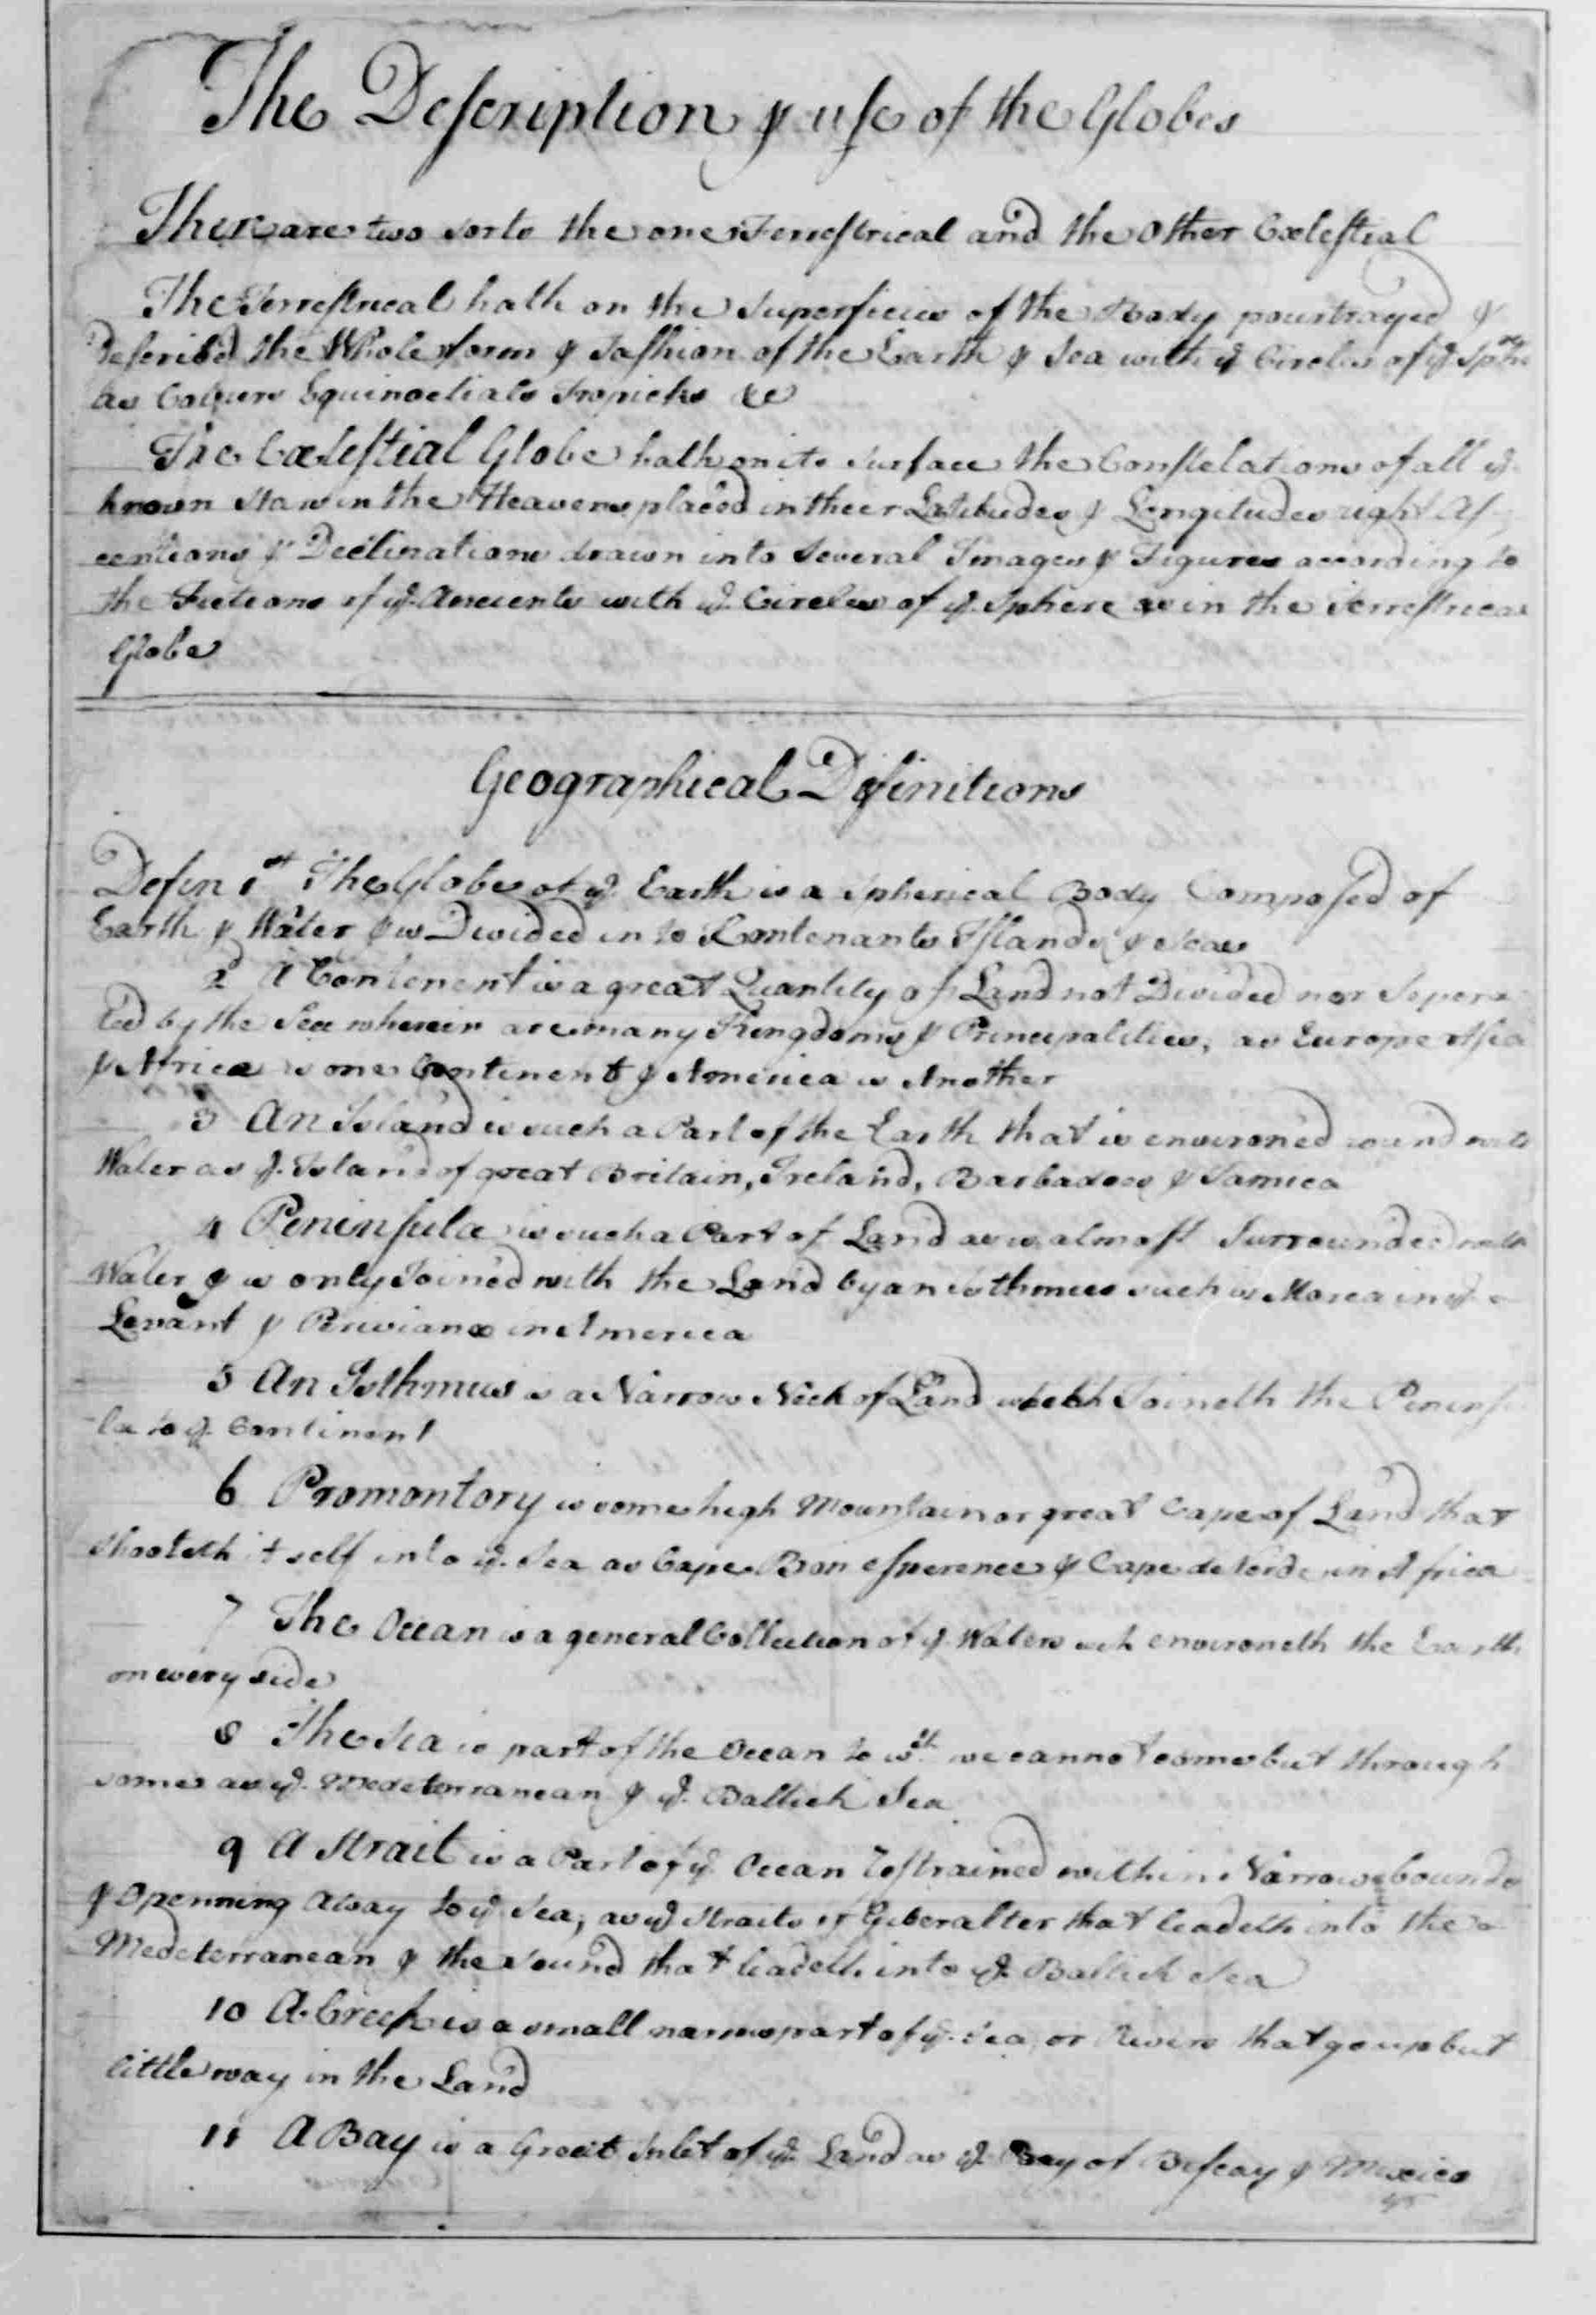 The Description & use of the Globes
There are two sorts the one Terrestrical and the Other Cœlestial
The Terrestrical hath on the Superficies of the Body pourtrayed &
Describ'd the Whole form & Fashion of the Earth & Sea with ye Circles of ye
as Colures Equinoctials Tropicks &c
The Cœlestial Globe hath on its Surface the Constelations of all ye
known Stars in the Heavens placed in their Latitudes & Longitudes right As-
centions & Declinations drawn into Several Images & Figures according to
the Fictions of ye Ancients with ye Circles of ye Sphere as in the Terrestrical
Globe
Geographical Definitions
Defin 1st The Globe of ye Earth is a Spherical Body Composed of
Earth & Water & is Divided into Contenants Islands & Seas
2d A Contenent is a great Quantity of Land not Divided nor Sepera
ted by the Sea wherein are many Kingdoms & Principalities, as Europe Asia
& Africa is one Continent & America is Another
3 An Island is such a Part of the Earth that is environ'd round with
Water as ye Island of great Britain, Ireland, Barbadoes & Jamica
4 Peninsula is such a Part of Land as is almost Surrounded with
Water & is only Joined with the Land by an isthmus such is Morea in ye
Levant & Periviana in America
5 An Isthmus is a Narrow Neck of Land which Joineth the Peninsu
la to ye Continent
6 Promontory is some high Mountain or great Cape of Land that
shooteth it self into ye Sea as Cape Bon esperence & Cape de Verde in Africa
7 The Ocean is a general Collection of ye Waters wch environeth the Earth
on every side
8 The Sea is part of the Ocean to wch we cannot come but through
some as ye Medeterranean & ye Baltick Sea
9 A Strait is a Part of ye Ocean restrained within Narrow bounds
& Openning a way to ye Sea, as ye Straits of Giberalter that leadeth into the
Medeterranean & the Sound that leadeth into ye Baltick Sea
10 A Creek is a small narrow part of ye Sea or Rivers that go up but
little way in the Land
11 A Bay is a Great Inlet of ye Land as ye Bay of Biscay & Mexico